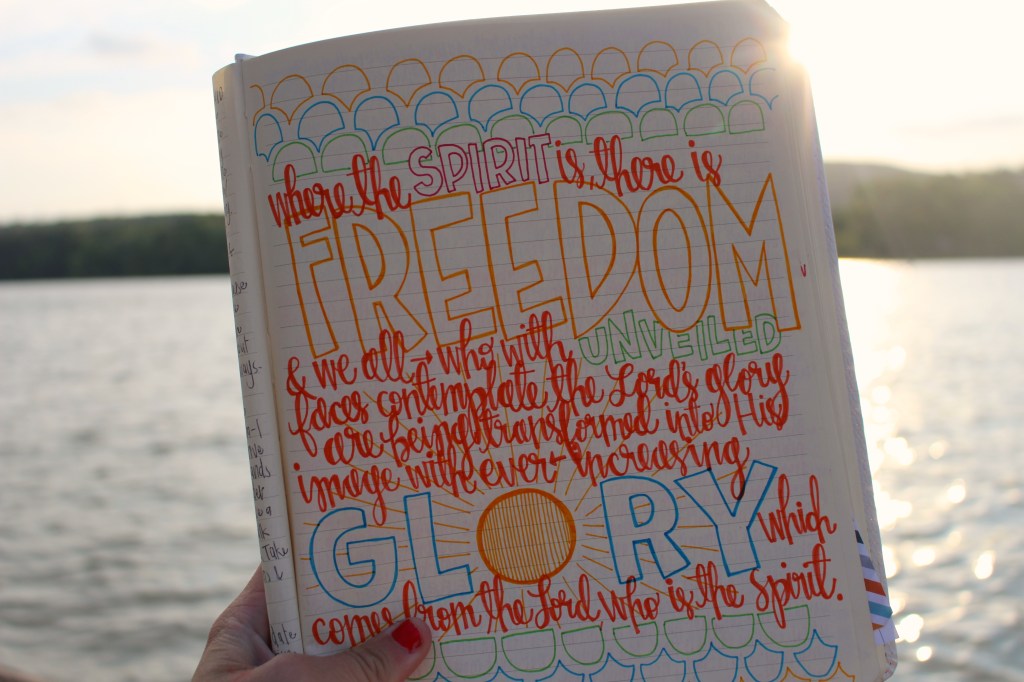 where the SPIRIT is, there is
FREEDOM
& we all → who with UNVEILED
faces contemplate the Lord's glory
are being transformed into His
image with ever-increasing
GLORY which
comes from the Lord, who is the Spirit.